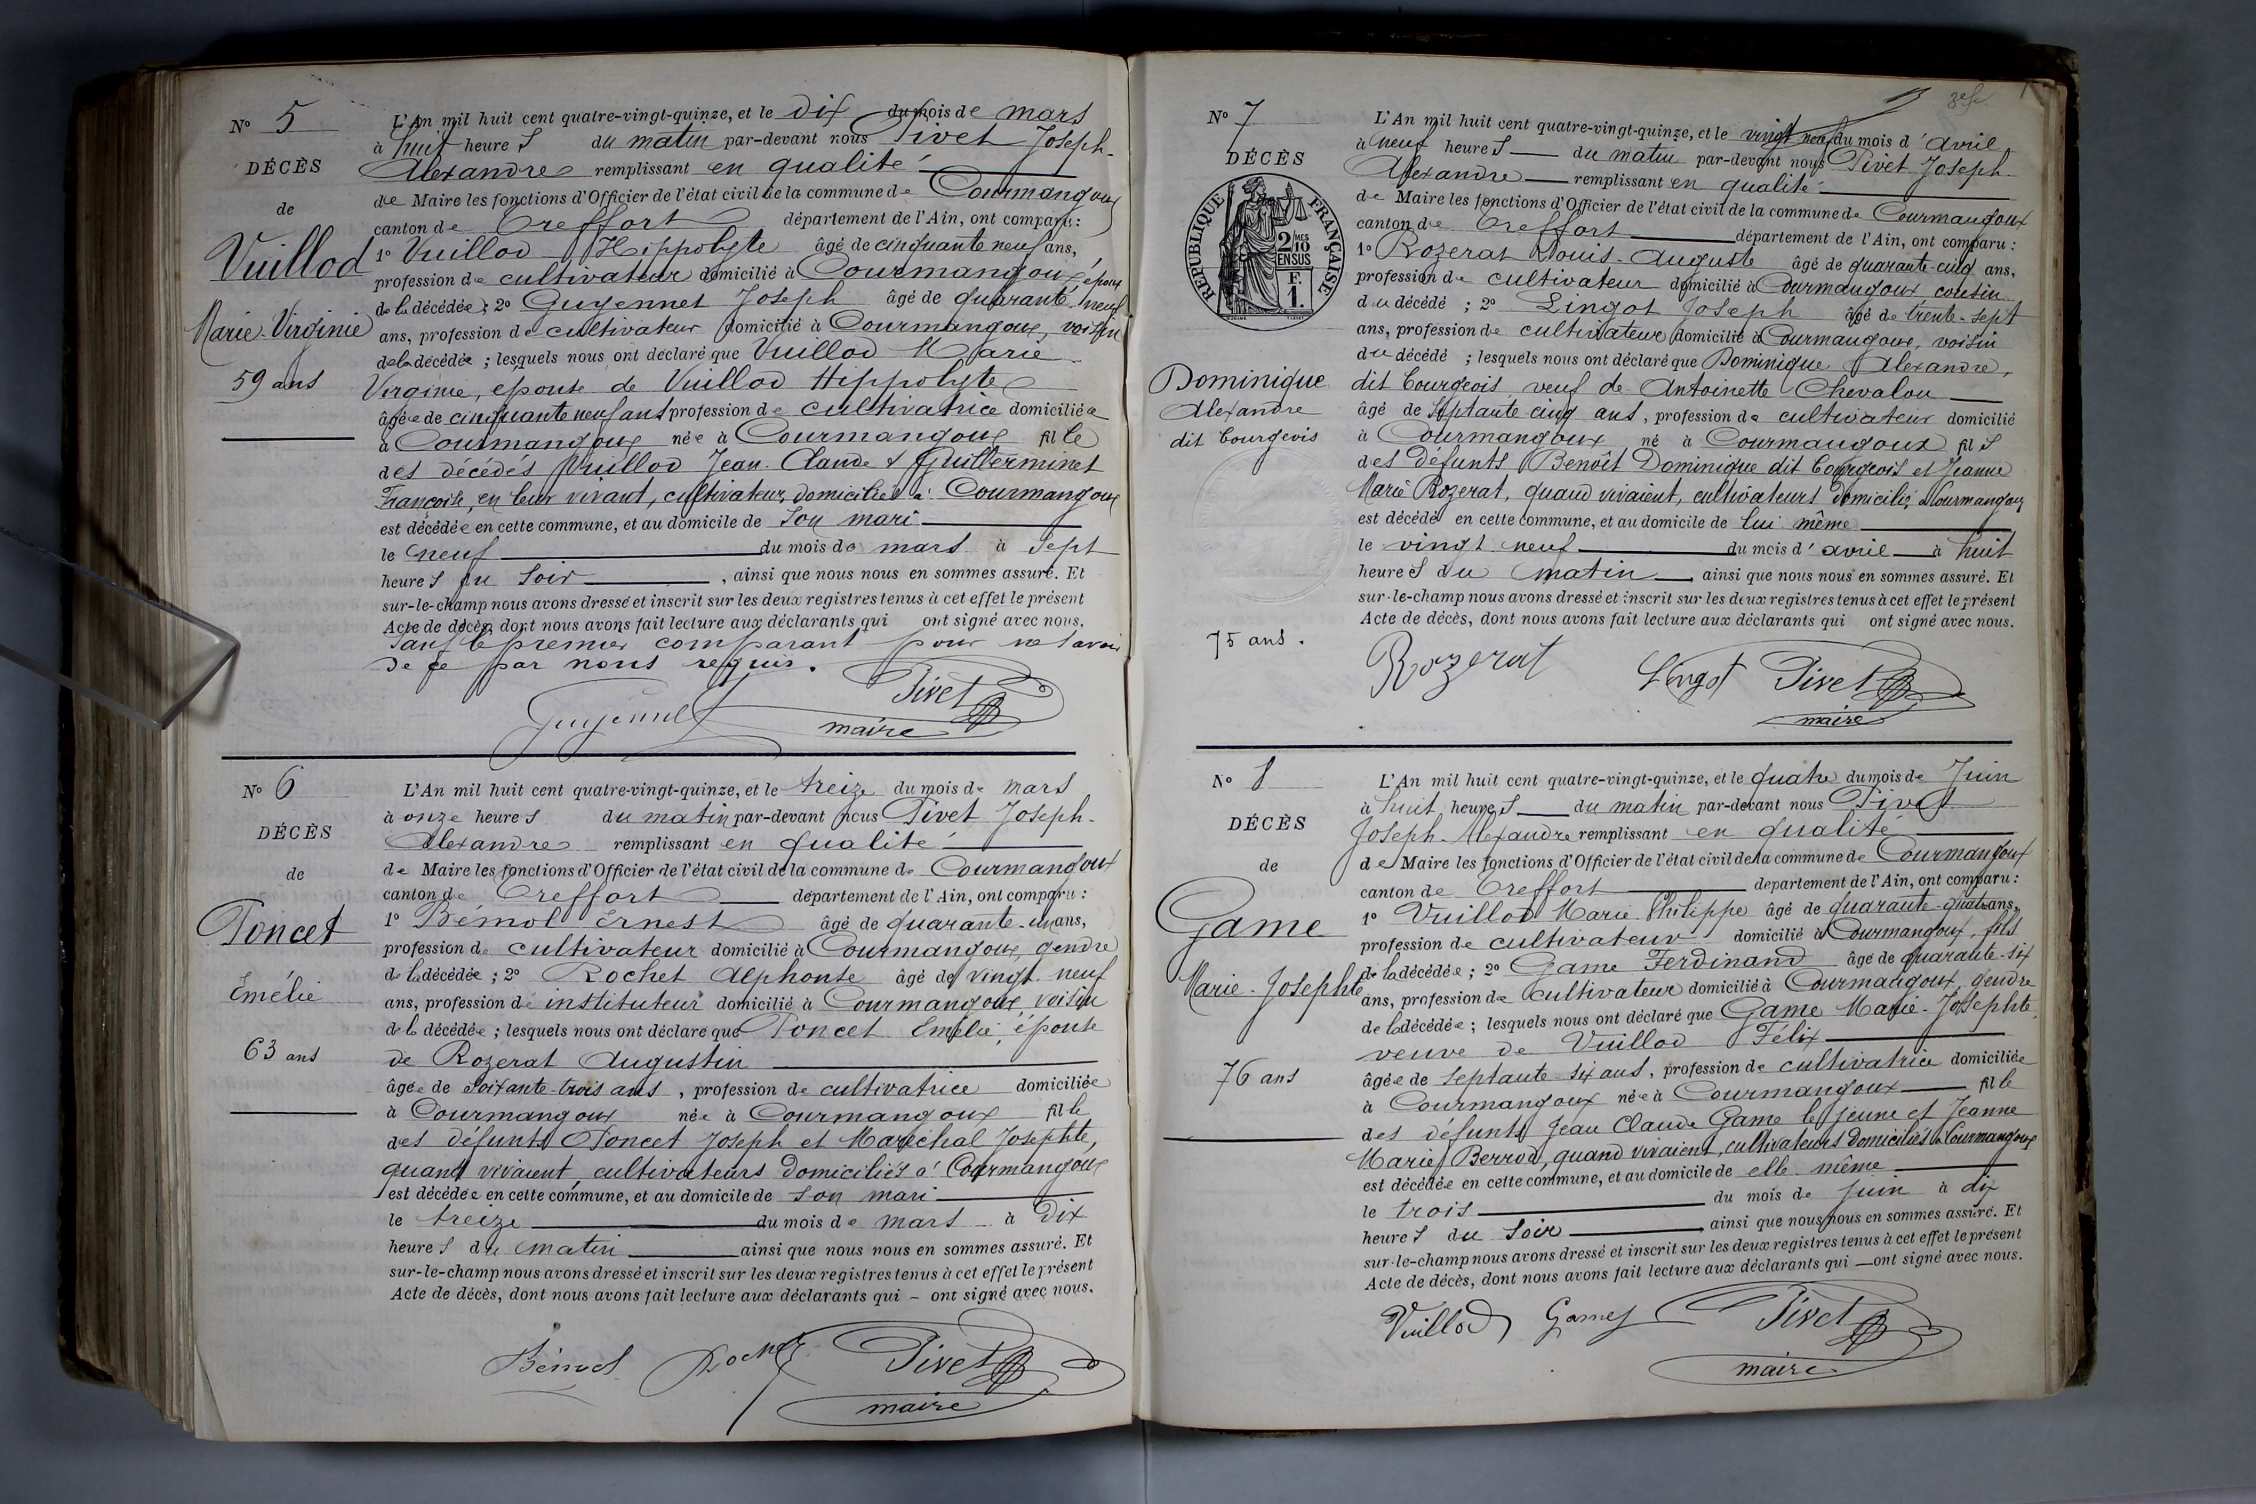 Nº 5
DÉCÈS
de
Vuillod
Marie-Virginie
59 ans
L'An mil huit cent quatre-vingt-quinze, et le dix du mois de mars
à huit heures du matin par-devant nous Pivet Joseph-
Alexandre remplissant en qualité
de Maire les fonctions d'Officier de l'état civil de la commune de Courmangoux
canton de Treffort département de l'Ain, ont comparu :
1º Vuillod Hippolyte âgé de cinquante neuf ans,
profession de cultivateur domicilié à Courmangoux, époux
de la décédée ; 2º Guyennet Joseph âgé de quarante-neuf
ans, profession de cultivateur domicilié à Courmangoux, voisin
de la décédée ; lesquels nous ont déclaré que Vuillod Marie
Virginie, épouse de Vuillod Hippolyte
âgée de cinquante neuf ans profession de cultivatrice domiciliée
à Courmangoux née à Courmangoux fille
des décédés Vuillod Jean-Claude & Guillerminet
Françoise, en leur vivant, cultivateurs domiciliés à Courmangoux
est décédée en cette commune, et au domicile de son mari
le neuf du mois de mars à sept
heures du soir , ainsi que nous nous en sommes assuré. Et
sur-le-champ nous avons dressé et inscrit sur les deux registres tenus à cet effet le présent
Acte de décès, dont nous avons fait lecture aux déclarants qui ont signé avec nous.
sauf le premier comparant pour ne savoir
de ce par nous requis.
Guyennet Pivet
maire
Nº 6
DÉCÈS
de
Poncet
Emélie
63 ans
L'An mil huit cent quatre-vingt-quinze, et le treize du mois de mars
à onze heures du matin par-devant nous Pivet Joseph-
Alexandre remplissant en qualité
de Maire les fonctions d'Officier de l'état civil de la commune de Courmangoux
canton de Treffort département de l'Ain, ont comparu :
1º Bémol Ernest âgé de quarante-un ans,
profession de cultivateur domicilié à Courmangoux, gendre
de la décédée ; 2º Rochet Alphonse âgé de vingt-neuf
ans, profession de instituteur domicilié à Courmangoux, voisin
de la décédée ; lesquels nous ont déclaré que Poncet Emélie, épouse
de Rozerat Augustin
âgée de soixante-trois ans , profession de cultivatrice domiciliée
à Courmangoux née à Courmangoux fille
des défunts Poncet Joseph et Maréchal Josephte,
quand vivaient, cultivateurs domiciliés à Courmangoux
est décédée en cette commune, et au domicile de son mari
le treize du mois de mars à dix
heures du matin ainsi que nous nous en sommes assuré. Et
sur-le-champ nous avons dressé et inscrit sur les deux registres tenus à cet effet le présent
Acte de décès, dont nous avons fait lecture aux déclarants qui – ont signé avec nous.
Bémol Rochet Pivet
maire
Nº 7
DÉCÈS
RÉPUBLIQUE FRANÇAISE
2 MES
10
EN SUS
F.
1.
Dominique
Alexandre
dit Courgeois
75 ans.
L'An mil huit cent quatre-vingt-quinze, et le vingt neuf du mois d'avril
à neuf heures du matin par-devant nous Pivet Joseph-
Alexandre remplissant en qualité
de Maire les fonctions d'Officier de l'état civil de la commune de Courmangoux
canton de Treffort département de l'Ain, ont comparu :
1º Rozerat Louis-Auguste âgé de quarante-cinq ans,
profession de cultivateur domicilié à Courmangoux cousin
du décédé ; 2º Lingot Joseph âgé de trente-sept
ans, profession de cultivateur domicilié à Courmangoux, voisin
du décédé ; lesquels nous ont déclaré que Dominique Alexandre,
dit Courgeois, veuf de Antoinette Chevalon
âgé de septante cinq ans, profession de cultivateur domicilié
à Courmangoux né à Courmangoux fils
des défunts Benoît Dominique dit Courgeois et Jeanne
Marie Rozerat, quand vivaient, cultivateurs domiciliés à Courmangoux
est décédé en cette commune, et au domicile de lui même
le vingt neuf du mois d'avril à huit
heures du matin ainsi que nous nous en sommes assuré. Et
sur-le-champ nous avons dressé et inscrit sur les deux registres tenus à cet effet le présent
Acte de décès, dont nous avons fait lecture aux déclarants qui ont signé avec nous.
Rozerat Lingot Pivet
maire
Nº 8
DÉCÈS
de
Game
Marie-Josephte
76 ans
L'An mil huit cent quatre-vingt-quinze, et le quatre du mois de Juin
à huit heures du matin par-devant nous Pivet
Joseph-Alexandre remplissant en qualité
de Maire les fonctions d'Officier de l'état civil de la commune de Courmangoux
canton de Treffort département de l'Ain, ont comparu :
1º Vuillod Marie Philippe âgé de quarante-quatre ans,
profession de cultivateur domicilié à Courmangoux, fils
de la décédée ; 2º Game Ferdinand âgé de quarante-six
ans, profession de cultivateur domicilié à Courmangoux, gendre
de la décédée ; lesquels nous ont déclaré que Game Marie-Josephte,
veuve de Vuillod Félix
âgée de septante-six ans, profession de cultivatrice domiciliée
à Courmangoux née à Courmangoux fille
des défunts Jean Claude Game le jeune et Jeanne
Marie Berrod, quand vivaient, cultivateurs domiciliés à Courmangoux
est décédée en cette commune, et au domicile de elle même
le trois du mois de juin à dix
heures du soir ainsi que nous nous en sommes assuré. Et
sur-le-champ nous avons dressé et inscrit sur les deux registres tenus à cet effet le présent
Acte de décès, dont nous avons fait lecture aux déclarants qui — ont signé avec nous.
Vuillod Game Pivet
maire